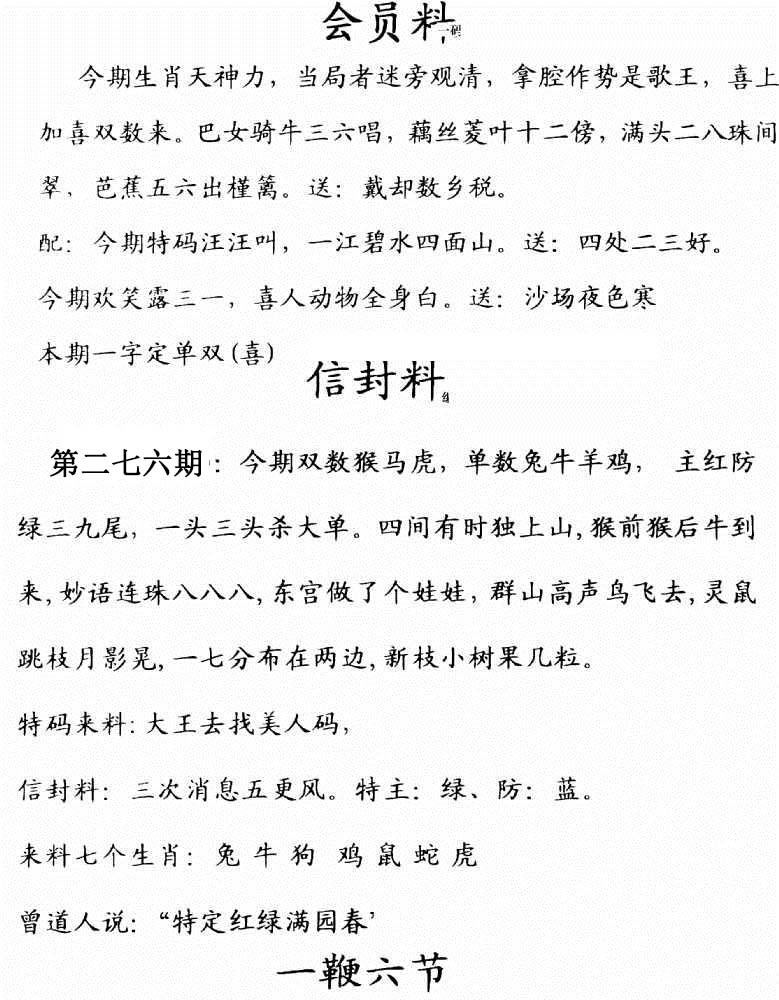 会员料一码
今期生肖天神力，当局者迷旁观清，拿腔作势是歌王，喜上
加喜双数来。巴女骑牛三六唱，藕丝菱叶十二傍，满头二八珠间
翠，芭蕉五六出槿篱。送：戴却数乡税。
配：今期特码汪汪叫，一江碧水四面山。送：四处二三好。
今期欢笑露三一，喜人动物全身白。送：沙场夜色寒
本期一字定单双(喜)
信封料
第二七六期：今期双数猴马虎，单数兔牛羊鸡， 主红防
绿三九尾，一头三头杀大单。四间有时独上山,猴前猴后牛到
来,妙语连珠八八八,东宫做了个娃娃，群山高声鸟飞去,灵鼠
跳枝月影晃,一七分布在两边,新枝小树果几粒。
特码来料:大王去找美人码，
信封料：三次消息五更风。特主：绿、防：蓝。
来料七个生肖：兔 牛 狗 鸡 鼠 蛇 虎
曾道人说：“特定红绿满园春’
一鞭六节